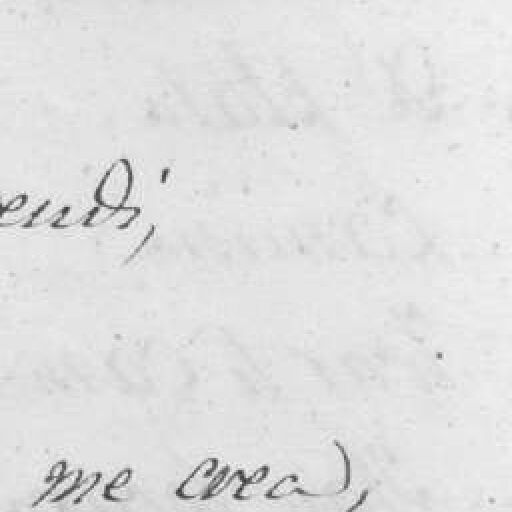 endi,
me crea),